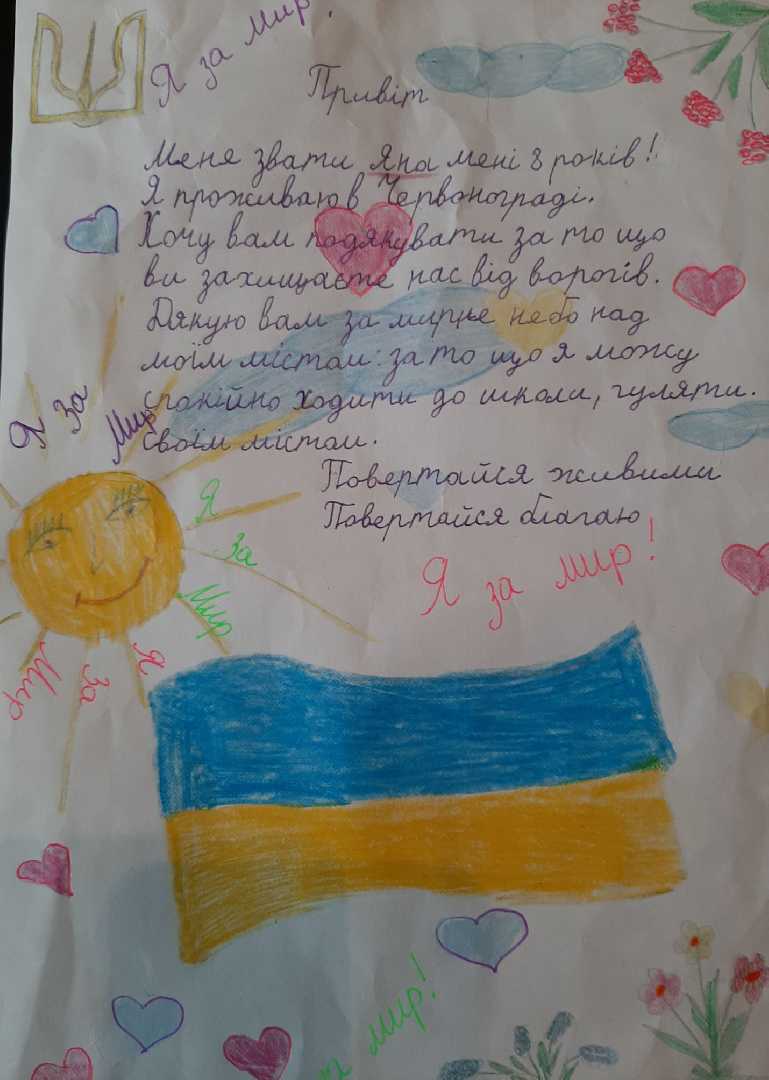 Я за мир!
Привіт
Меня звати Яна мені 8 років!
Я проживаю в Червонограді.
Хочу вам подякувати за то що
ви захищаєте нас від ворогів.
Дякую вам за мирне небо над
моїм містом: за то що я можу
спокійно ходити до школи, гуляти.
своїм містом.
Повертайся живими
Повертайся благаю
Я за Мир
Я за Мир
Я за мир!
Я за Мир
за мир!